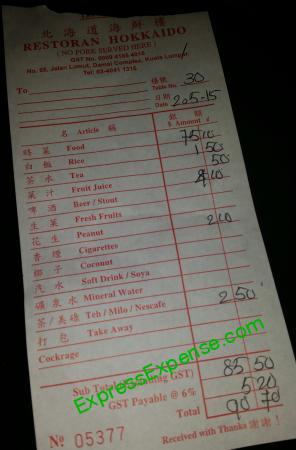 北海道海鮮樓
RESTORAN HOKKAIDO
(NO PORK SERVED HERE)
Tel: 03-4041 1315
To
檯號 Table No. 30
日期 Date 2-05-15
名 Article 稱
銀額 $ Amount ¢
時菜 Food 75 10
白飯 Rice 1 50
茶水 Tea 50
菓汁 Fruit Juice
啤酒 Beer / Stout
生菓 Fresh Fruits
花生 Peanut
香煙 Cigarettes
椰子 Coconut
汽水 Soft Drink / Soya
礦泉水 Mineral Water 2 50
茶/美祿 Teh / Milo / Nescafe
打包 Take Away
Cockrage
Sub Total GST) 85 50
GST Payable @ 6% 5 20
Total 90 70
Nº 05377
Received with Thanks 謝謝!
ExpressExpense.com